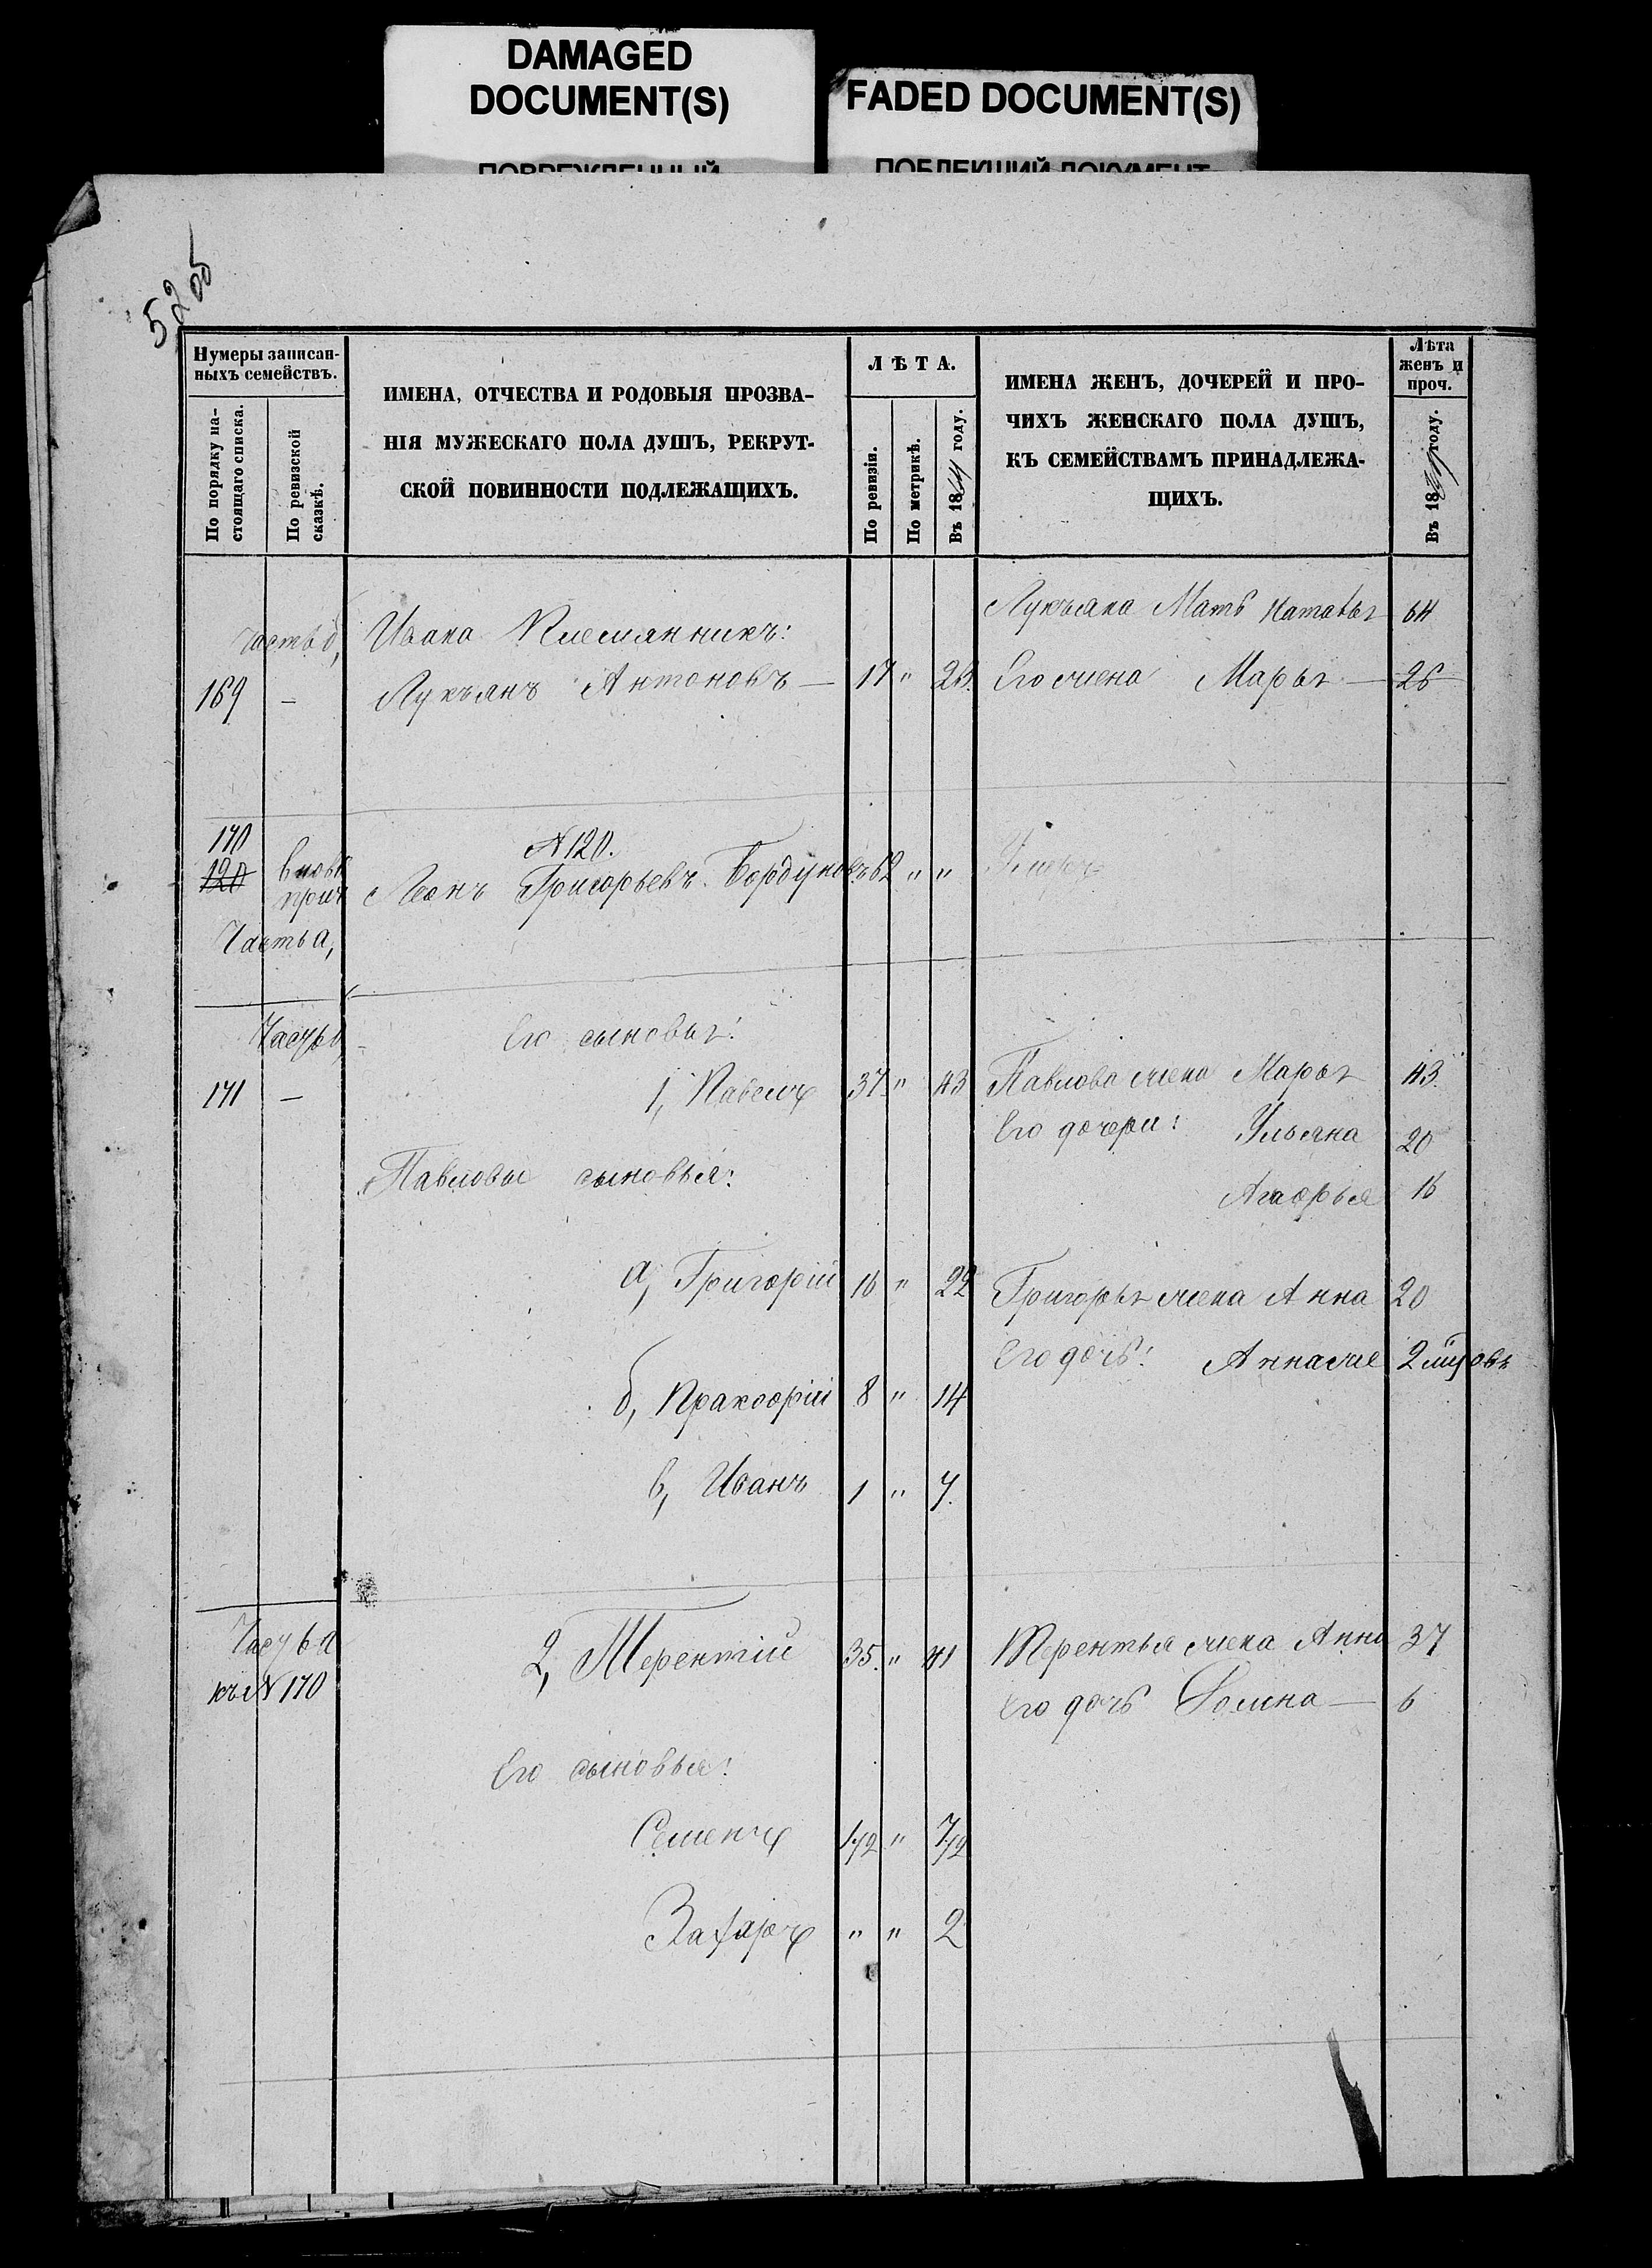 DAMAGED
DOCUMENT(S)
ПОВРЕЖДЕННЫЙ
FADED DOCUMENT(S)
ПОБЛЕКШИЙ ДОКУМЕНТ
52 об
Нумеры записан-
ныхъ семействъ.
По порядку на-
стоящаго списка.
По ревизской
сказкѣ.
ИМЕНА, ОТЧЕСТВА И РОДОВЫЯ ПРОЗВА-
НІЯ МУЖЕСКАГО ПОЛА ДУШЪ, РЕКРУТ-
СКОЙ ПОВИННОСТИ ПОДЛЕЖАЩИХЪ.
ЛѢТА.
По ревизіи.
По метрикѣ.
Въ 18 году.
ИМЕНА ЖЕНЪ, ДОЧЕРЕЙ И ПРО-
ЧИХЪ ЖЕНСКАГО ПОЛА ДУШЪ,
КЪ СЕМЕЙСТВАМЪ ПРИНАДЛЕЖА-
ЩИХЪ.
Лѣта
женъ и
проч.
Въ 18 году.
Лукьяна Мать Наталья 64
Часть б, Ивана Племянникъ:
169 – Лукьянъ Антоновъ — 17 " 23. Его жена Марья — 26
170
N 120.
120 вновь
прич Леонъ Григорьевъ Бордуновъ 62 " "
Часть а,
Часть б, Его сыновья:
171 – 1, Павелъ 37 " 43 Павлова жена Марья 43
Его дочери: Ульяна 20
Павловы сыновья:
Агафья 16
а, Григорій 16 " 22 Григорья жена Анна 20
Его дочь: Анна 2
б, 8 " 14
в, Иванъ 1 " 7.
Часть а
къ N 170 2, Терентій 35. " 41 Терентья жена Анна 37
Его дочь — 6
Его сыновья:
Семенъ 1/2 " 7/12
Захаръ " " 2